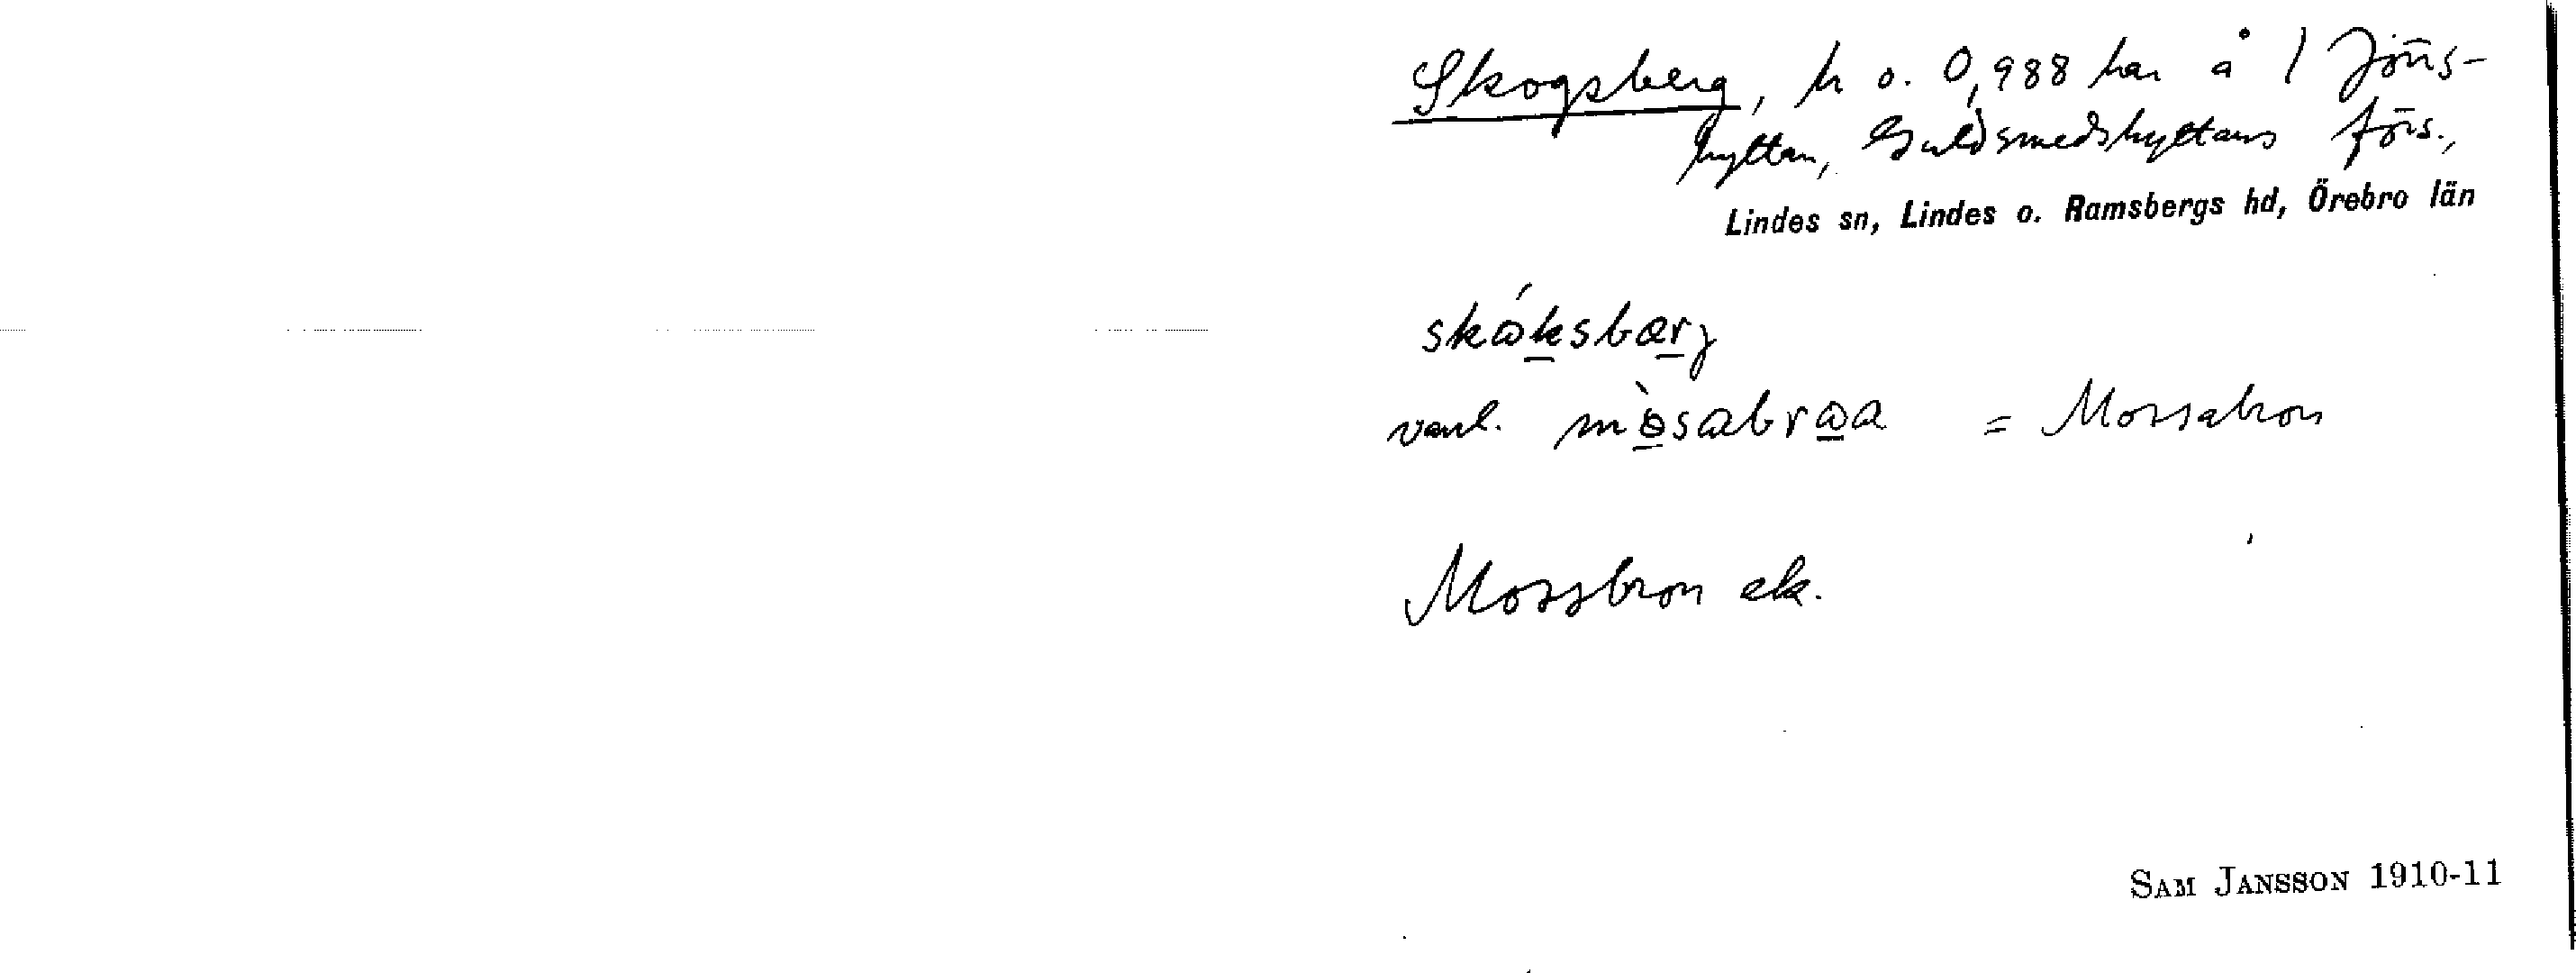 Skogsberg, h o. 0,988 har å 1 Jöns-
hyttan, Guldsmedshyttans förs.,
Lindes sn, Lindes o. Ramsbergs hd, Örebro län
skóksbærj
vanl. mòsabroa = Mossabron
Mossbron ek.
SAM JANSSON 1910-11